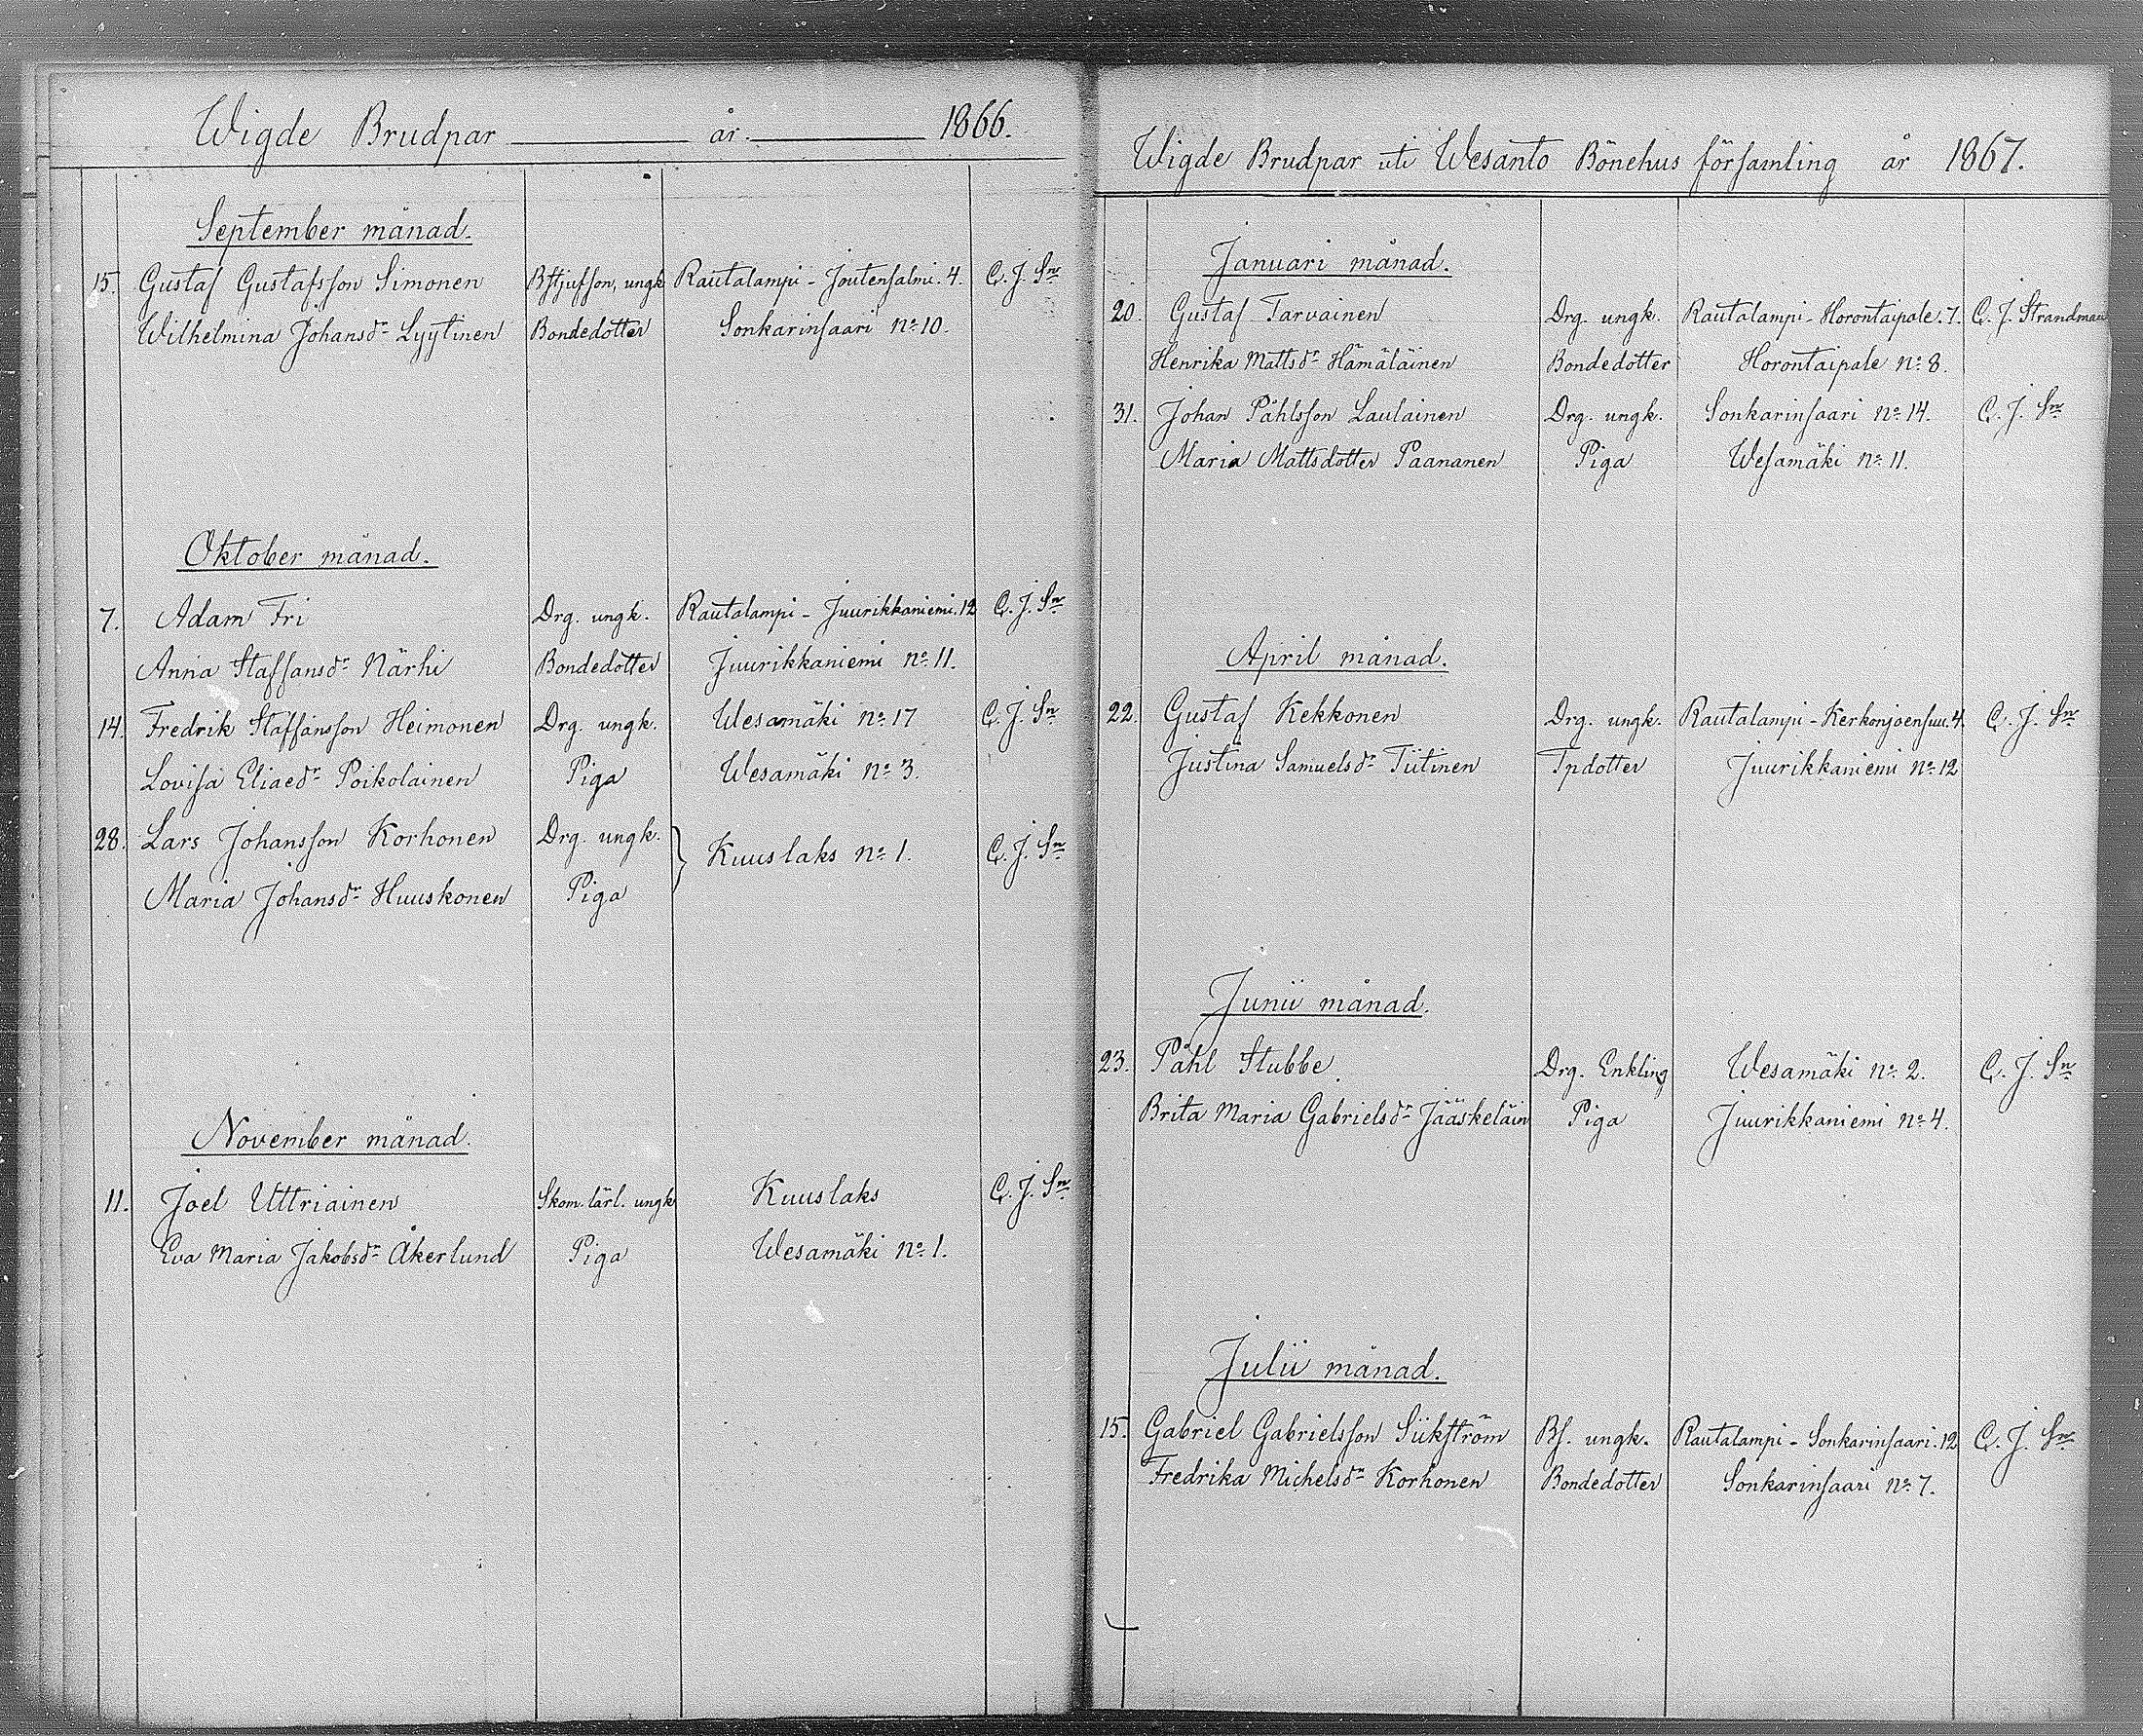 Wigde Brudpar år 1866.
September månad.
15. Gustaf Gustafsson Simonen Bstjufson, ungk Rautalampi - Joutensalmi. 4. C. J. Sn
Wilhelmina Johansdr Lyytinen Bondedotter Sonkarinsaari No 10.
Oktober månad.
7. Adam Fri Drg. ungk. Rautalampi - Juurikkaniemi. 12 C. J. Sn
Anna Staffansdr Närhi Bondedotter Juurikkaniemi No 11.
14. Fredrik Staffansson Heimonen Drg. ungk. Wesamäki No 17 C. J. Sn
Lovisa Eliaedr Poikolainen Piga Wesamäki No 3.
28. Lars Johansson Korhonen Drg. ungk. Kuuslaks No 1. C. J. Sn
Maria Johansdr Huuskonen Piga
November månad.
11. Joel Uttriainen Skom. lärl. ungk Kuuslaks C. J. Sn
Eva Maria Jakobsdr Åkerlund Piga Wesamäki No 1.
Wigde Brudpar uti Wesanto Bönehus församling år 1867.
Januari månad.
20. Gustaf Tarvainen Drg. ungk. Rautalampi - Horontaipale. 7. C. J. Strandman
Henrika Mattsdr Hämäläinen Bondedotter Horontaipale No 8.
31. Johan Påhlsson Laulainen Drg. ungk. Sonkarinsaari No 14. C. J. Sn
Maria Mattsdotter Paananen Piga Wesamäki No 11.
April månad.
22. Gustaf Kekkonen Drg. ungk. Rautalampi - Kerkonjoensuu. 4. C. J. Sn
Justina Samuelsdr Tiitinen Tpdotter Juurikkaniemi No 12
Junii månad.
23. Påhl Stubbe Drg. Enkling Wesamäki No 2. C. J. Sn
Brita Maria Gabrielsdr Jääskeläin Piga Juurikkaniemi No 4.
Julii månad.
15. Gabriel Gabrielsson Siikström Bs. ungk. Rautalampi - Sonkarinsaari. 12 C. J. Sn
Fredrika Michelsdr Korhonen Bondedotter Sonkarinsaari No 7.